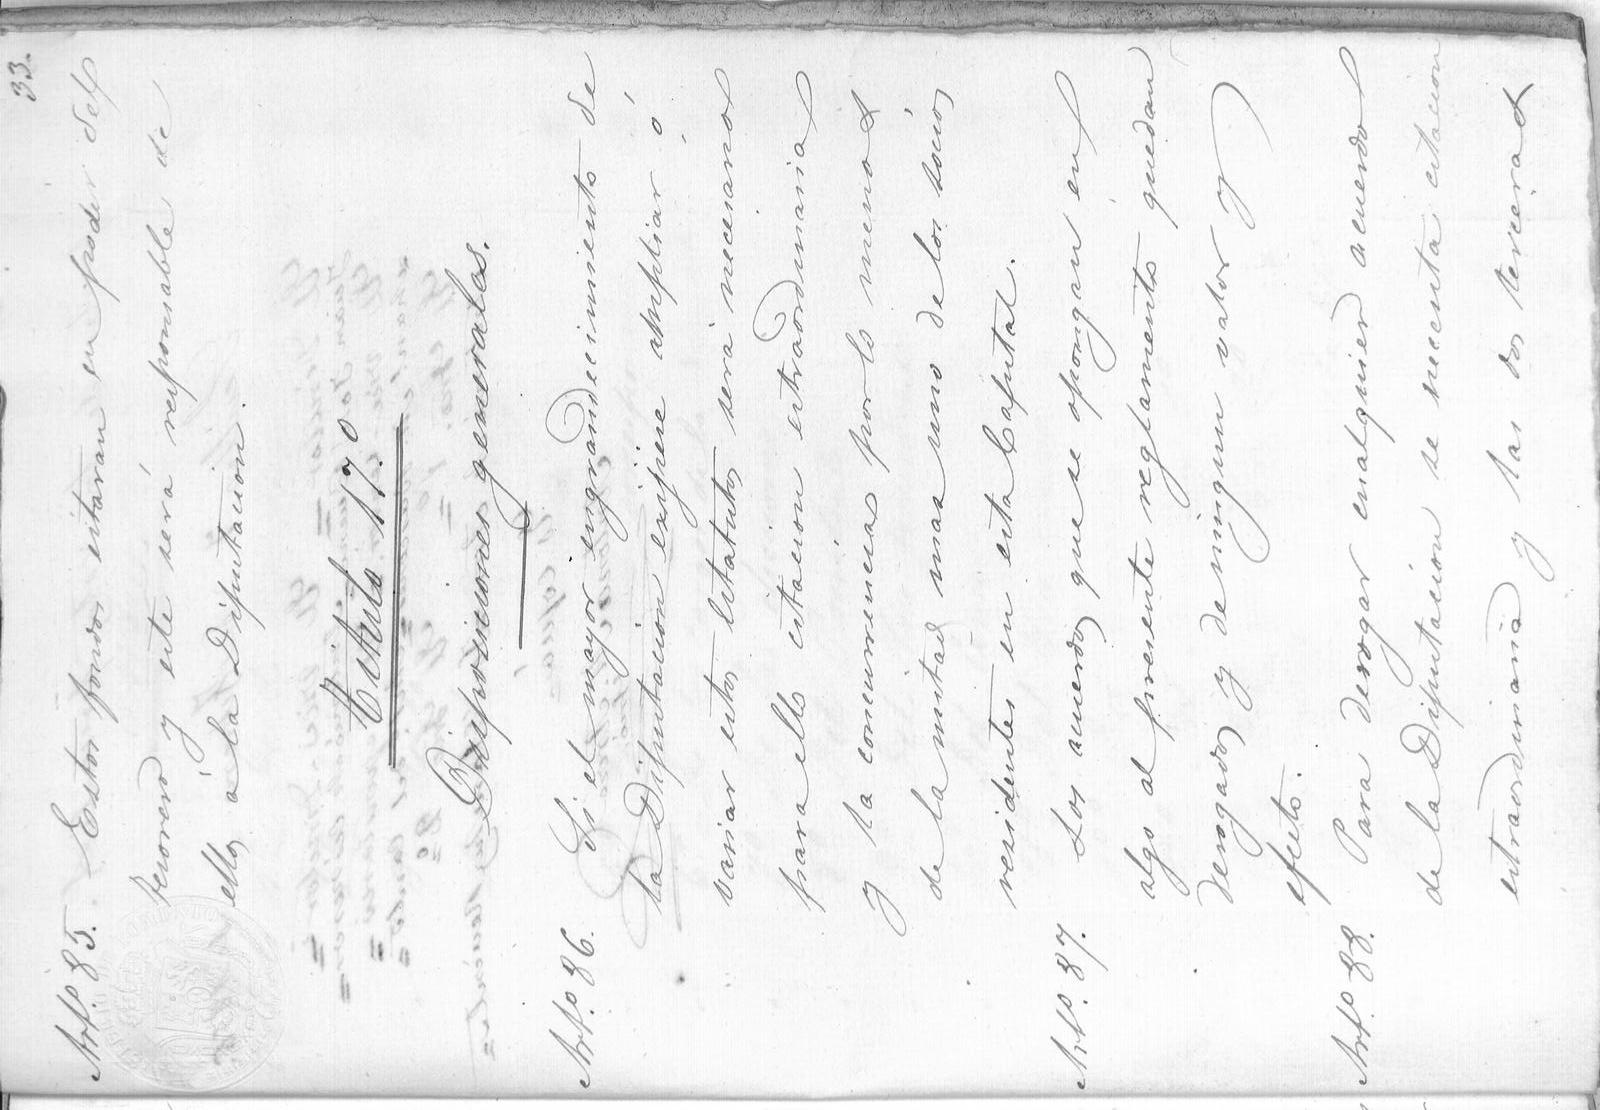 33.
Art.º 85. Estos fondos estaran en poder del
tesorero y este será responsable de
ellos á la Diputacion.
Titulo 17.º
Disposiciones generales.
Art.º 86. Si el mayor engrandecimiento de
la Diputacion exijiere ampliar ó
variar estos Estatutos será necesario
para ello citacion extraordinaria
y la concurrencia por lo menos
de la mitad mas uno de los socios
residentes en esta Capital.
Art.º 87. Los acuerdos que se opongan en
algo al presente reglamento quedan
derogados y de ningun valor y
efecto.
Art.º 88. Para derogar cualquier acuerdo
de la Diputacion se necesita citacion
extraordinaria y las dos terceras